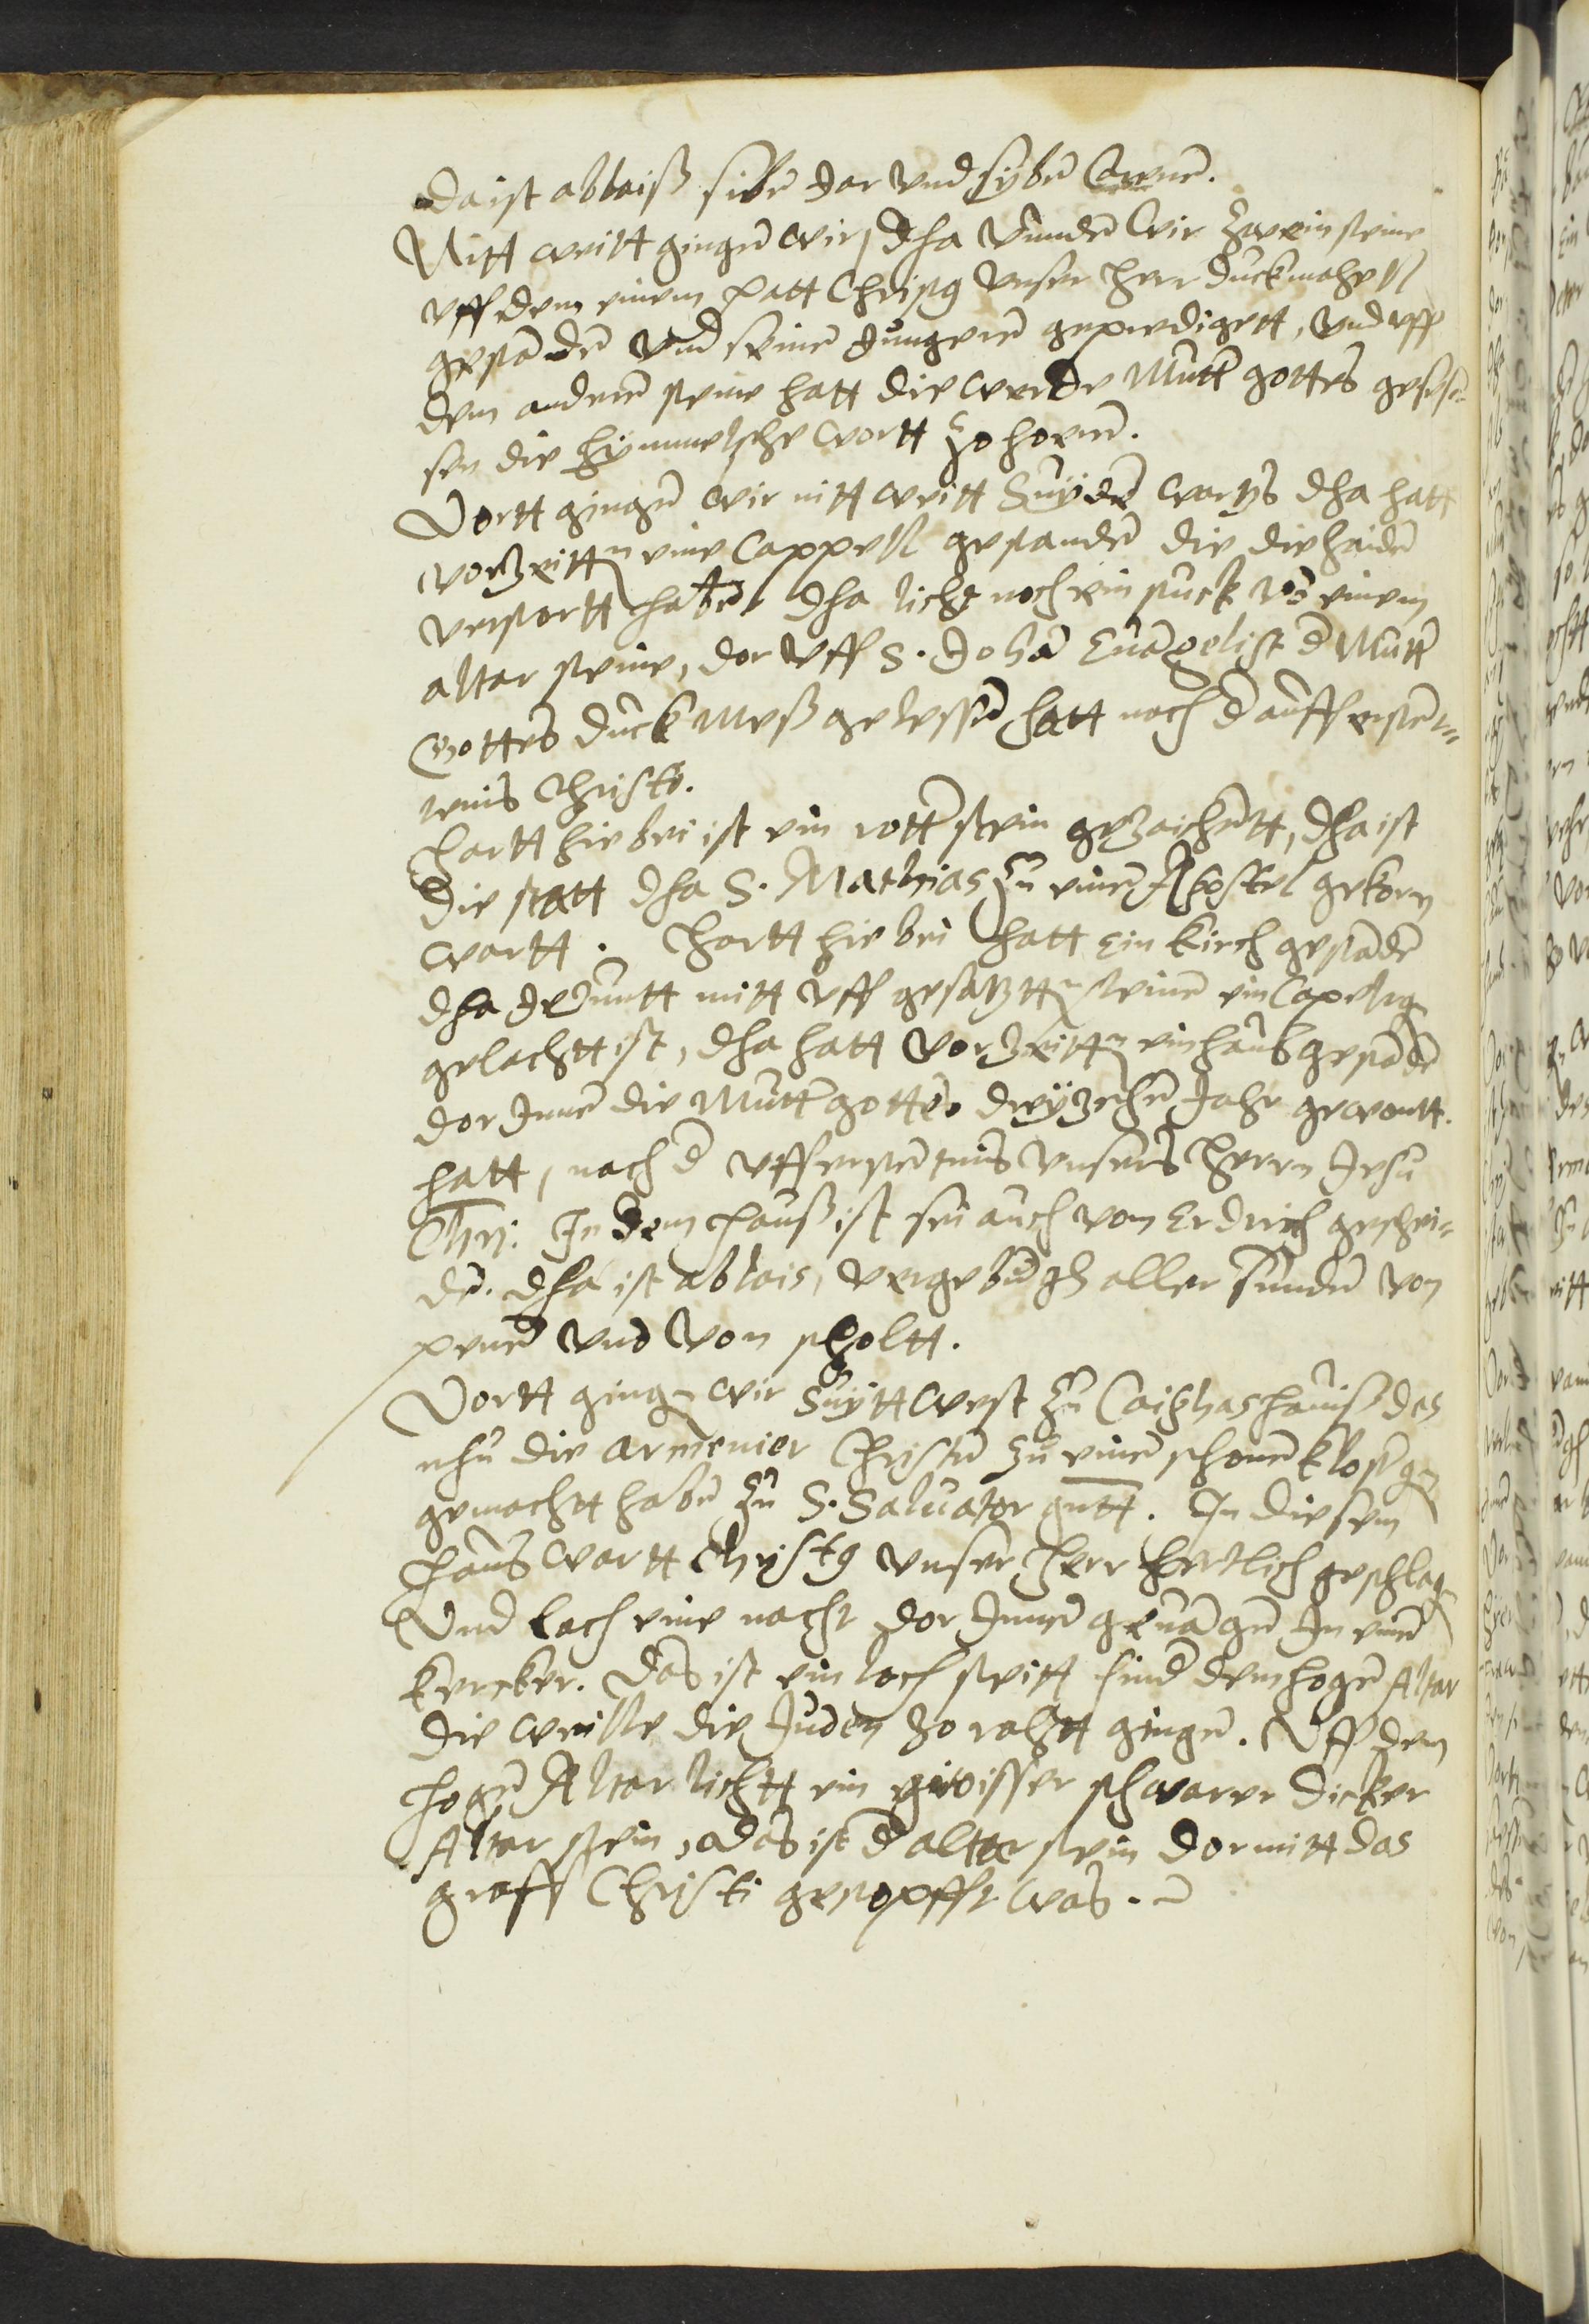 da ist ablaiß sibē Jar vnd sybē Carenē.
Nitt weitt gingē wir, dha vundē wir zwein steine
vff dem einem hatt Christ9 vnser Herr duckmahell
gestandē vnd seinē Jungerē geprediget, vnd vff
dem anderē steine hatt die werde Mutt' gottes geses=
sen die hÿmmelsche wortt zo horenn.
Vortt gingē wir nitt weitt Suÿdē wartzs dha hatt
vorzeittn eine Cappell gestandē die die haidē
verstortt habē, dha licht noch ein stuck vō einem
altar steine, dar vff S. Johā Euāgelist d' Mutt'
Gottes duck Meß gelessē hatt nach d' aufferstē=
tenis Christi.
Hartt hie bei ist ein rott stein gezaichētt, dha ist
die statt dha S. Mathias zu einē Apostel gekorn
wartt. Hartt hie bei hatt ein kirch gestādē
dha Jezuntt mitt vff gesatzttn steinē ein Capelleg
gelachtt ist, dha hatt vorzeittn ein hauß gestādē
dar Jnnē die Mutt' gottes dryzehē Jahr gewontt
hatt, nach d' vfferstētnis vnsers Herrn Jesu
Chrj. Jn dem hauß ist sei auch von Erdrich geschei=
dē. dha ist ablais, vergebūgh aller sundē von
penē vnd von scholtt.
Vortt gingn wir Suÿtt west zu Caiphas hauiß das
nhu die armenier Christē zu einē schonē klostg
gemachtt habē zu S. Saluator gntt. Jn diesem
haus wartt Christ9 vnser Herr hertlich geschlagn
Vnd lach eine nacht dar Jnnē geuāgē Jn einē
kercker. Das ist ein loch seitt hind' dem hogē Altar
die weille die Juden zo rahtt gingē. Vff dem
hogē Altar lichtt ein groisser schwarer dicker
Altar stein, das ist d' altar stein dar mitt das
graff Christi gestopfft was.